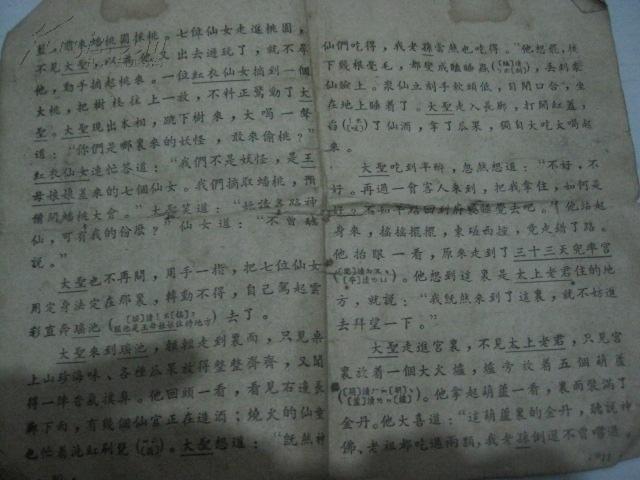 籃，前來蟠桃園採桃。七位仙女走進桃園，
不見大聖，以爲他又出去遊玩了，就不尋
他，動手摘起桃來。一位紅衣仙女摘到一個
大桃，把樹枝往上一放，不料正驚動了大
聖。大聖現出本相，跳下樹來，大喝一聲
道：“你們是哪裏來的妖怪，敢來偷桃？”
紅衣仙女連忙答道：“我們不是妖怪，是王
母娘娘差來的七個仙女。我們摘取蟠桃，預
備開蟠桃大會。”大聖笑道：“
仙，可有我的份麼？”仙女道：“不曾聽
說。”
大聖也不再問，用手一指，把七位仙女
用定身法定在那裏，轉動不得，自己駕起雲
彩直奔瑤池（）去了。
大聖來到瑤池，輕輕走到裏面，只見桌
上山珍海味、各種瓜果放得整整齊齊，又聞
得一陣香氣撲鼻。他回頭一看，看見右邊長
廊下面，有幾個仙官正在造酒；燒火的仙童
也忙着洗缸刷甕（）。大聖想道：“既然神
仙們吃得，我老孫當然也吃得。”他想罷，拔
下幾根毫毛，都變成瞌睡蟲（），丟到衆
仙臉上。衆仙立刻手軟頭低，目閉口合，坐
在地上睡着了。大聖走入長廊，打開缸蓋，
舀（）了仙酒，拿了瓜果，獨自大吃大喝起
來。
大聖吃到半醉，忽然想道：“不好，不
好。再過一會客人來到，把我拿住，如何是
好。不如早點回到府裏睡覺去吧。”他站起
身來，搖搖擺擺，東碰西撞，竟走錯了路。
他抬眼一看，原來走到了三十三天兜率宮
（）。他想到這裏是太上老君住的地
方，就說：“我既然來到了這裏，就不妨進
去拜望一下。”
大聖走進宮裏，不見太上老君，只見宮
裏放着一個大火爐，爐旁放着五個葫蘆
（）。他拿起葫蘆一看，裏面裝滿了
金丹。他大喜道：“這葫蘆裏的金丹，聽說神
佛、老祖都吃過兩顆，我老孫倒還不曾嚐過